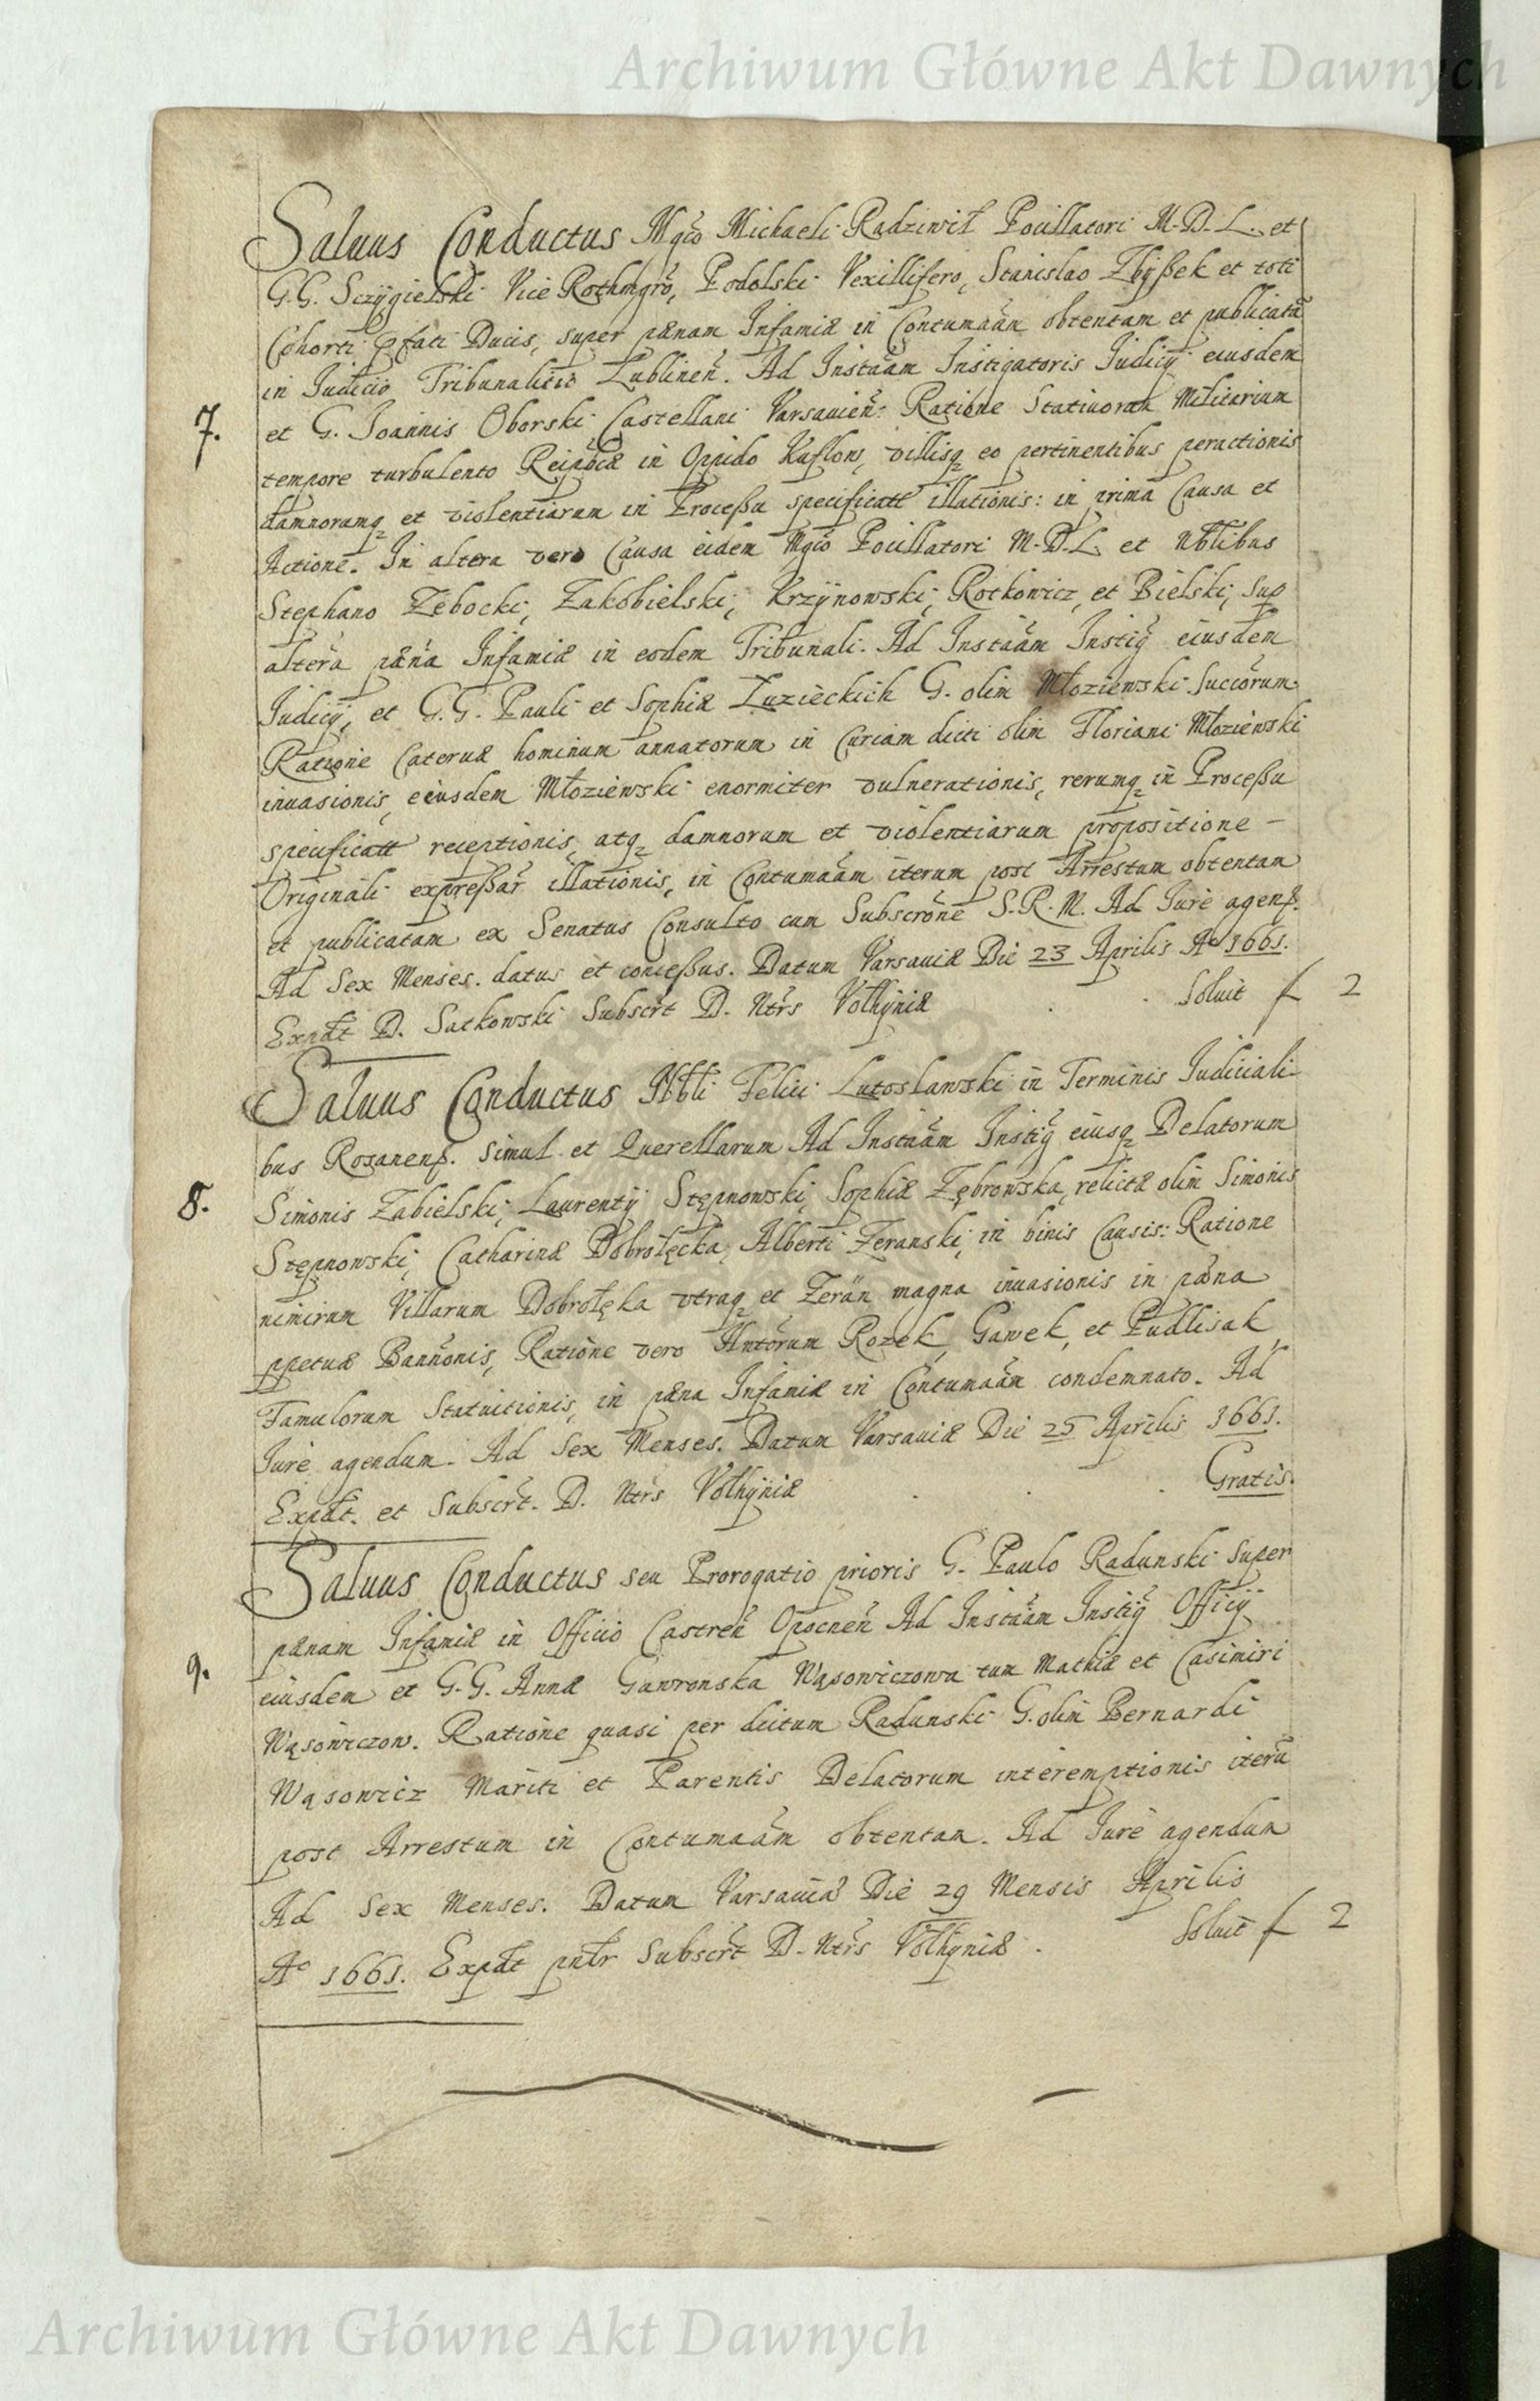 Archiwum Główne Akt Dawnych
Saluus Conductus Mgco Michaeli Radziwił Pocillatori M. D. L. et
G. G. Sczygielski Vice Rothmgro, Podolski Vexillifero, Stanislao Zbyßek et toti
Cohorti pfati Ducis, super pænam Infamiæ in Contumaam obtentam et publicatā
in Judicio Tribunalitio Lublinen. Ad Instaam Instigatoris Judicij eiusdem
7. et G. Joannis Oborski Castellani Varsauien: Ratione Statiuorum Militarium
tempore turbulento Reipbcæ in Oppido Kuflow, villisq eo pertinentibus peractionis
damnorumq et violentiarum in Proceßu specificatt illationis: in prima Causa et
Actione. In altera vero Causa eidem Mgco Pocillatori M. D. L. et Nblibus
Stephano Zebocki, Zakobielski, Krzynowski, Rotkowicz, et Bielski, sup
altera pæna Infamiæ in eodem Tribunali. Ad Instaam Instig eiusdem
Judicij, et G. G. Pauli et Sophiæ Luzieckich G. olim Młoziewski Succorum
Ratione Cateruæ hominum armatorum in Curiam dicti olim Floriani Młoziewski
inuasionis, eiusdem Młoziewski enormiter vulnerationis, rerumq in Proceßu
specificatt receptionis, atq damnorum et violentiarum propositione –
Originali expreßar illationis, in Contumaam iterum post Arrestum obtentam
et publicatam ex Senatus Consulto cum Subscrone S. R. M. Ad Jure agend.
Ad Sex Menses. datus et conceßus. Datum Varsauiæ Die 23 Aprilis Ao 1661.
Expdt D. Satkowski Subscrt D. Ntrs Volhyniæ . . Soluit f 2
Saluus Conductus Nbli Felici Lutoslawski in Terminis Judiciali-
bus Rozanens. simul et Querellarum Ad Instaam Instig eiusq Delatorum
8. Simonis Zabielski, Laurentij Stępnowski, Sophiæ Zębrowska, relictæ olim Simonis
Stępnowski, Catharinæ Dobrołęcka, Alberti Zeranski, in binis Causis: Ratione
nimirum Villarum Dobrołęka vtraq et Zerān magna inuasionis in pæna
ppetuæ Bannonis, Ratione vero Antorum Rozek, Gawek, et Pudlisak,
Famulorum Statuitionis, in pæna Infamiæ in Contumaam condemnato. Ad
Jure agendum. Ad Sex Menses. Datum Varsauiæ Die 25 Aprilis 1661.
Expdt. et Subscrt. D. Ntrs Volhyniæ . . . Gratis.
Saluus Conductus seu Prorogatio prioris G. Paulo Radunski super
pænam Infamiæ in Officio Castren Opocnen Ad Instaam Instig Officij
9. eiusdem et G. G. Annæ Gawronska Wąsowiczowa tum Mathiæ et Casimiri
Wąsowiczow. Ratione quasi per dictum Radunski G. olim Bernardi
Wąsowicz Mariti et Parentis Delatorum interemptionis iterū
post Arrestum in Contumaam obtentam. Ad Jure agendum
Ad Sex Menses. Datum Varsauiæ Die 29 Mensis Aprilis
Ao 1661. Expdt pntr Subscrt D. Ntrs Volhyniæ . Soluit f 2
Archiwum Główne Akt Dawnych